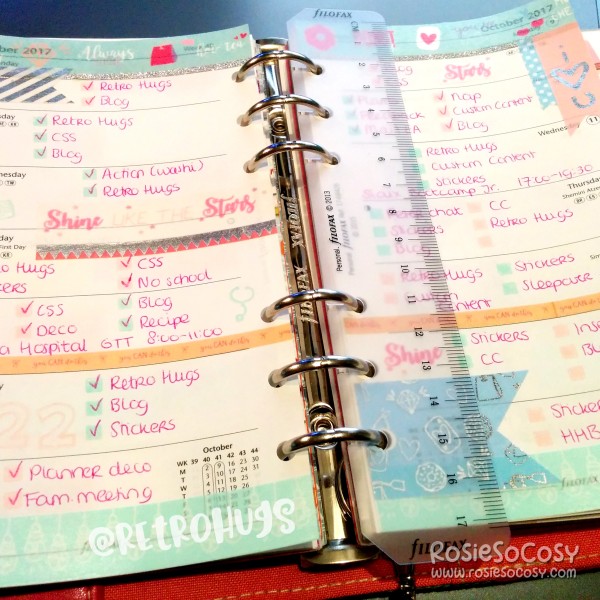 ber 2017
Always
Retro Hugs
Blog
sday
Retro Hugs
CSS
Blog
nesday
Action (washi)
Retro Hugs
Shine LIKE THE Stars
day
First Day
Retro Hugs
CSS
No school
CSS
Blog
Deco
Recipe
a Hospital GTT 8:00-11:00
you CAN do this
22
Retro Hugs
Blog
Stickers
Planner deco
Fam. meeting
October
WK 39 40 41 42 43 44
M 2 9 16 23 30
@RETROHUGS
FILOFAX
Personal FILOFAX © 2013
FILOFAX
CM
1
2
3
4
5
6
7
8
9
10
11
12
13
14
15
16
17
FILOFAX
October 2017
Stars
Nap
Custom Content
Blog
Wednesday
11
Retro Hugs
Custom Content
Stickers
17:00-19:30
Thursday
Shemini Atze
CC
Retro Hugs
Retro Hugs
Stickers
Sleepover
Shine
Stickers
CC
Stickers
HHB
RosieSoCosy
www.rosiesocosy.com